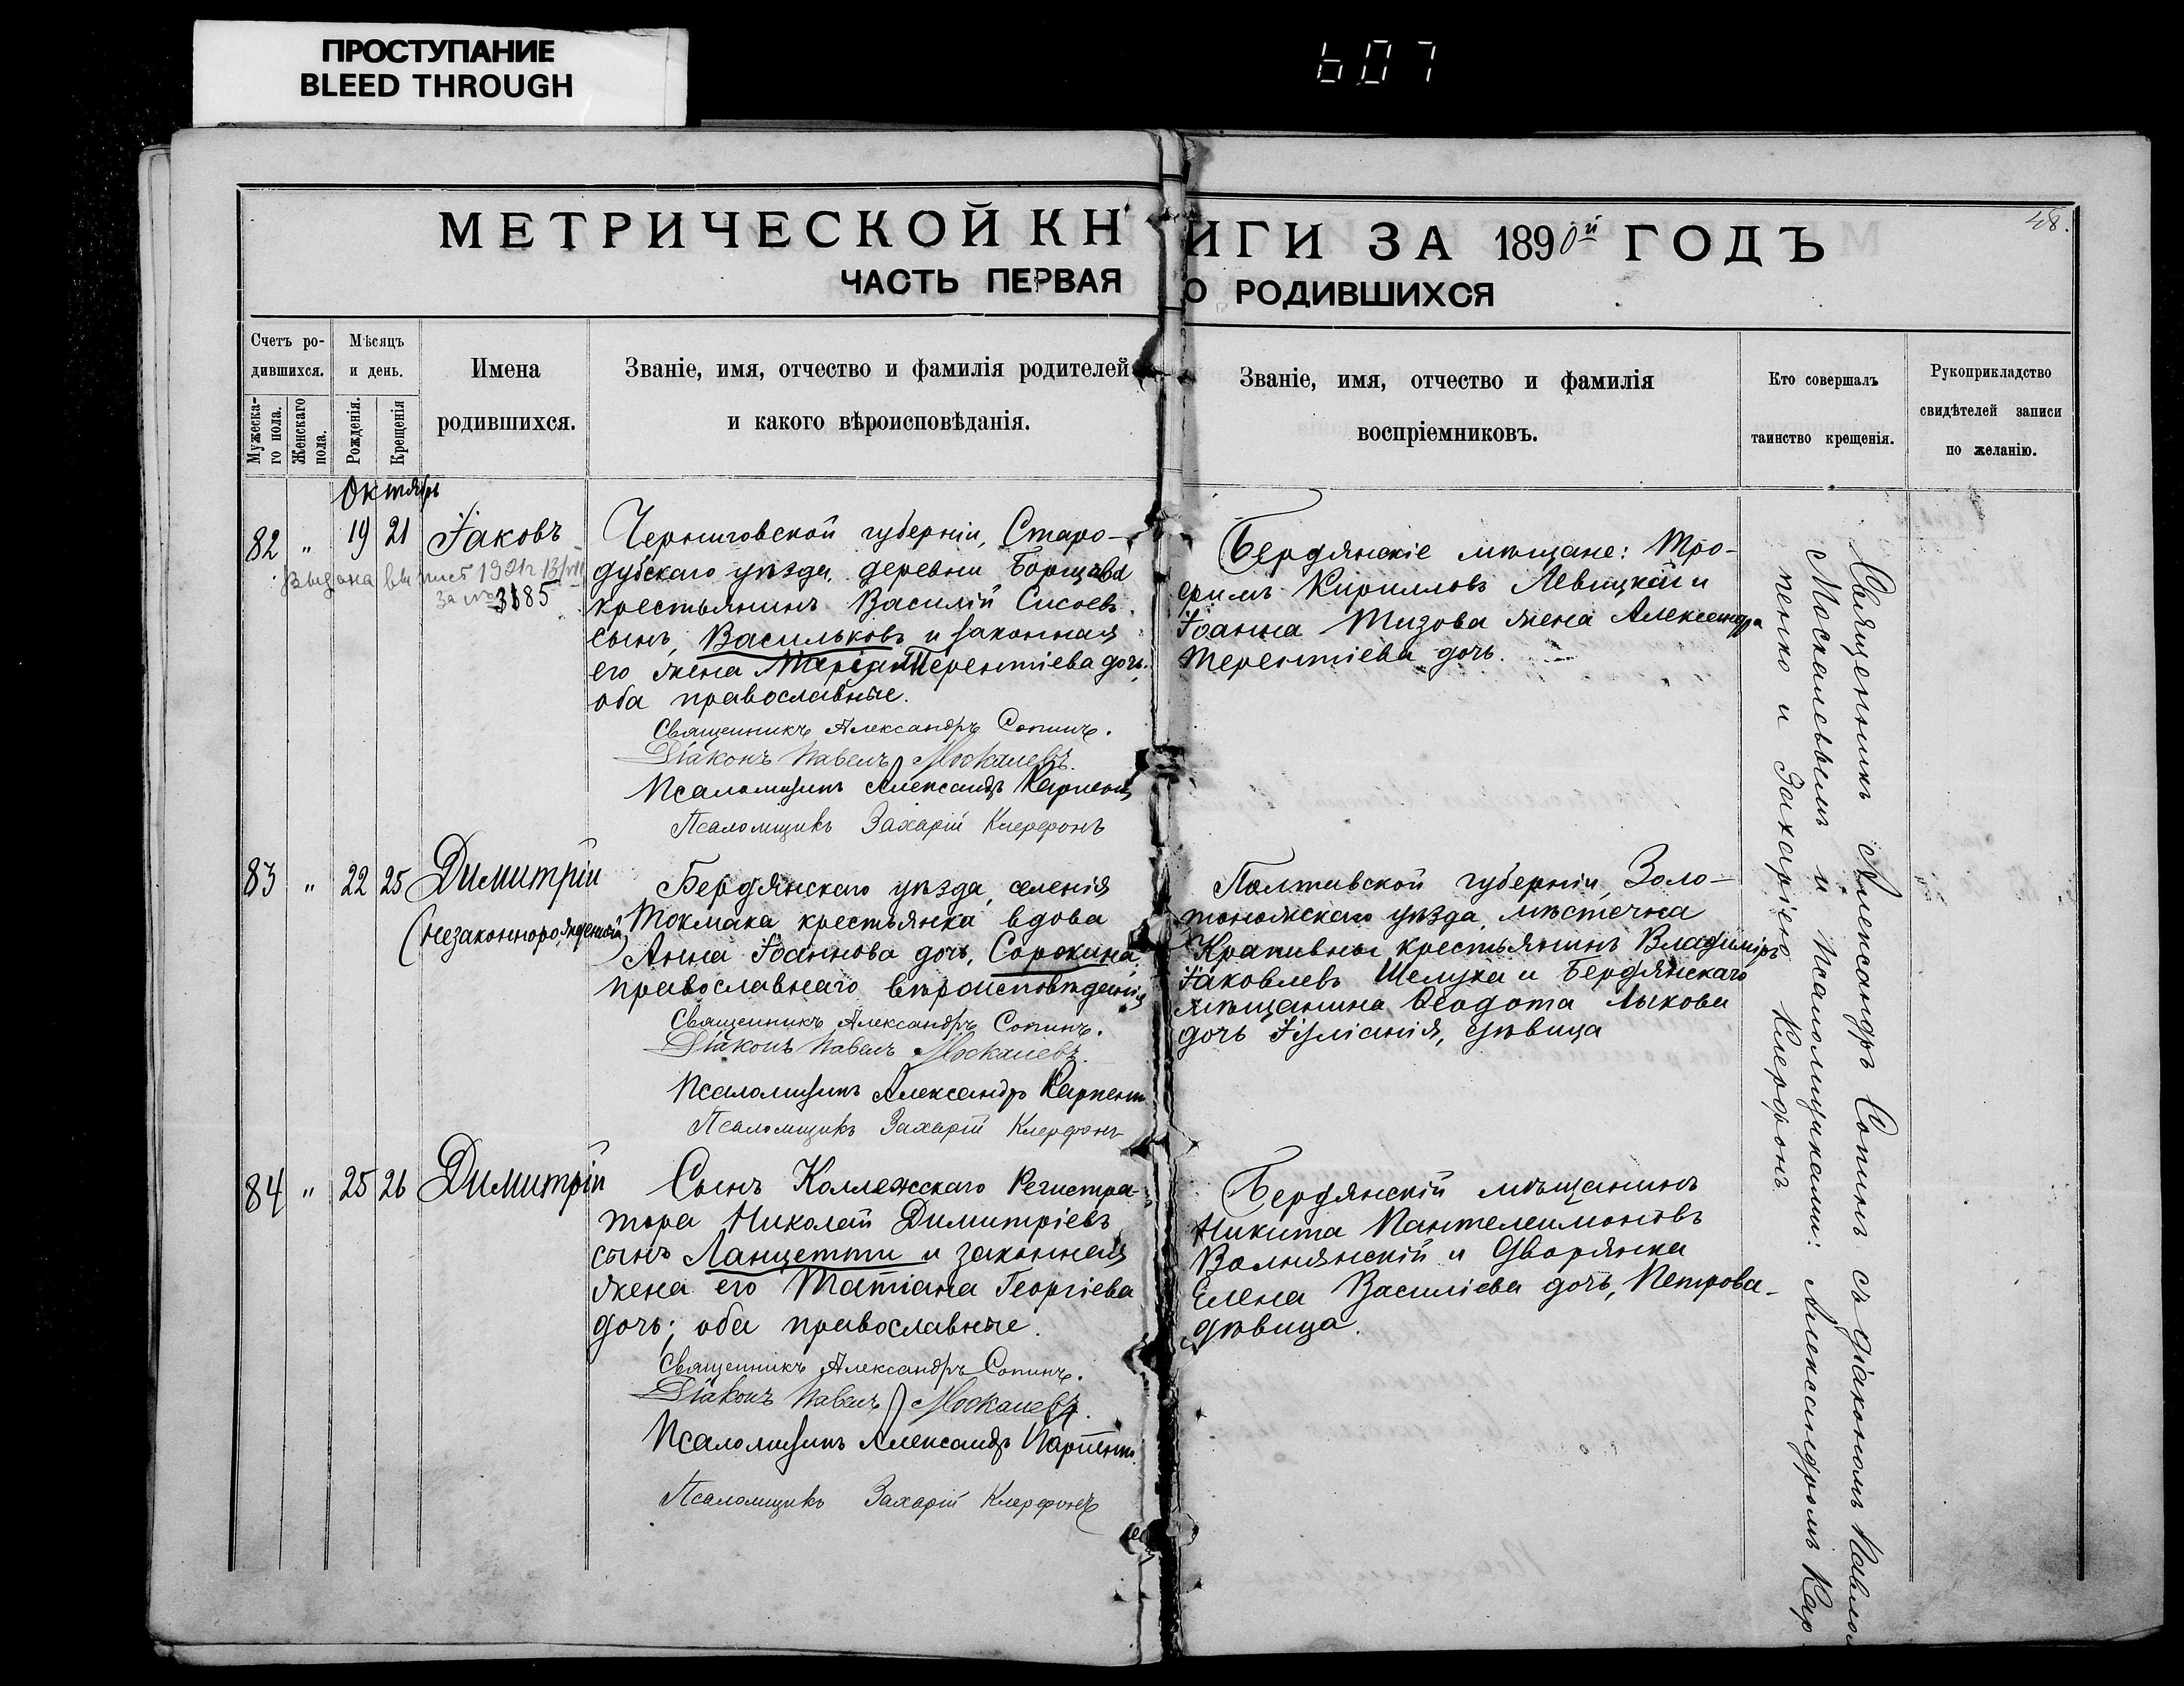 ПРОСТУПАНИЕ
BLEED THROUGH
607
48.
МЕТРИЧЕСКОЙ КНИГИ ЗА 1890й ГОДЪ
ЧАСТЬ ПЕРВАЯ О РОДИВШИХСЯ
Счетъ ро-
дившихся.
Мужеска-
го пола.
Женскаго
пола.
Мѣсяцъ
и день.
Рожденія.
Крещенія
Имена
родившихся.
Званіе, имя, отчество и фамилія родителей
и какого вѣроисповѣданія.
Званіе, имя, отчество и фамилія
воспріемниковъ.
Кто совершалъ
таинство крещенія.
Рукоприкладство
свидѣтелей записи
по желанію.
Октябрь
82 " 19 21 Іаковъ
Выдана
за №3185
Черниговской губерніи, Старо-
дубскаго уѣзда, деревни Борщова
крестьянинъ Василій Сисоевъ
сынъ, Васильковъ и законная
его жена Марія Терентіева дочь.
оба православные.
Священникъ Александръ Сопинъ.
Діаконъ Павелъ Москалевъ.
Псаломщикъ Александръ Карпенко
Псаломщикъ Захарій Клерфонъ
Бердянскіе мѣщане: Тро-
фимъ Кирилловъ Левицкій и
Іоанна Тизова жена Александра
Терентіева дочь.
83 " 22 25 Димитрій
(незаконнорожденный)
Бердянскаго уѣзда, селенія
Токмака крестьянка вдова
Анна Іоаннова дочь, Сорокина
православнаго вѣроисповѣданія
Священникъ Александръ Сопинъ.
Діаконъ Павелъ Москалевъ.
Псаломщикъ Александръ Карпенко
Псаломщикъ Захарій Клерфонъ
Полтавской губерніи, Золо-
тоножскаго уѣзда, мѣстечка
Крапивны крестьянинъ Владиміръ
Іаковлевъ Шелуха и Бердянскаго
мѣщанина Ѳеодота Лыкова
дочь Іуліанія, дѣвица
84 " 25 26 Димитрій
Сынъ Коллежскаго Регистра-
тора Николай Димитріевъ
сынъ Ланцетти и законная
жена его Татіана Георгіева
дочь; оба православные.
Священникъ Александръ Сопинъ.
Діаконъ Павелъ Москалевъ.
Псаломщикъ Александръ Карпенко
Псаломщикъ Захарій Клерфонъ
Бердянскій мѣщанинъ
Никита Пантелеимоновъ
Волнянскій и Дворянка
Елена Василіева дочь, Петрова-
дѣвица.
Священникъ Александръ Сопинъ съ діакономъ Павломъ
Москалевымъ и псаломщиками: Александромъ Кар-
пенко и Захаріею Клерфонъ